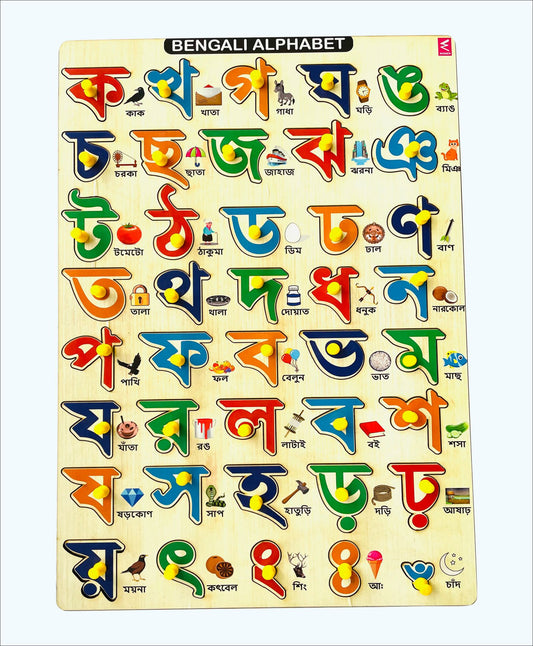 BENGALI ALPHABET
wi
ক খ গ ঘ ঙ
কাক খাতা গাধা ঘড়ি ব্যাঙ
চ ছ জ ঝ ঞ
চরকা ছাতা জাহাজ ঝরনা মিঞ
ট ঠ ড ঢ ণ
টমেটো ঠাকুমা ডিম ঢাল বাণ
ত থ দ ধ ন
তালা থালা দোয়াত ধনুক নারকোল
প ফ ব ভ ম
পাখি ফল বেলুন ভাত মাছ
য র ল ব শ
যাঁতা রঙ লাটাই বই শসা
ষ স হ ড় ঢ়
ষড়কোণ সাপ হাতুড়ি দড়ি আষাঢ়
য় ৎ ং ঃ ঁ
ময়না কৎবেল শিং আঃ চাঁদ